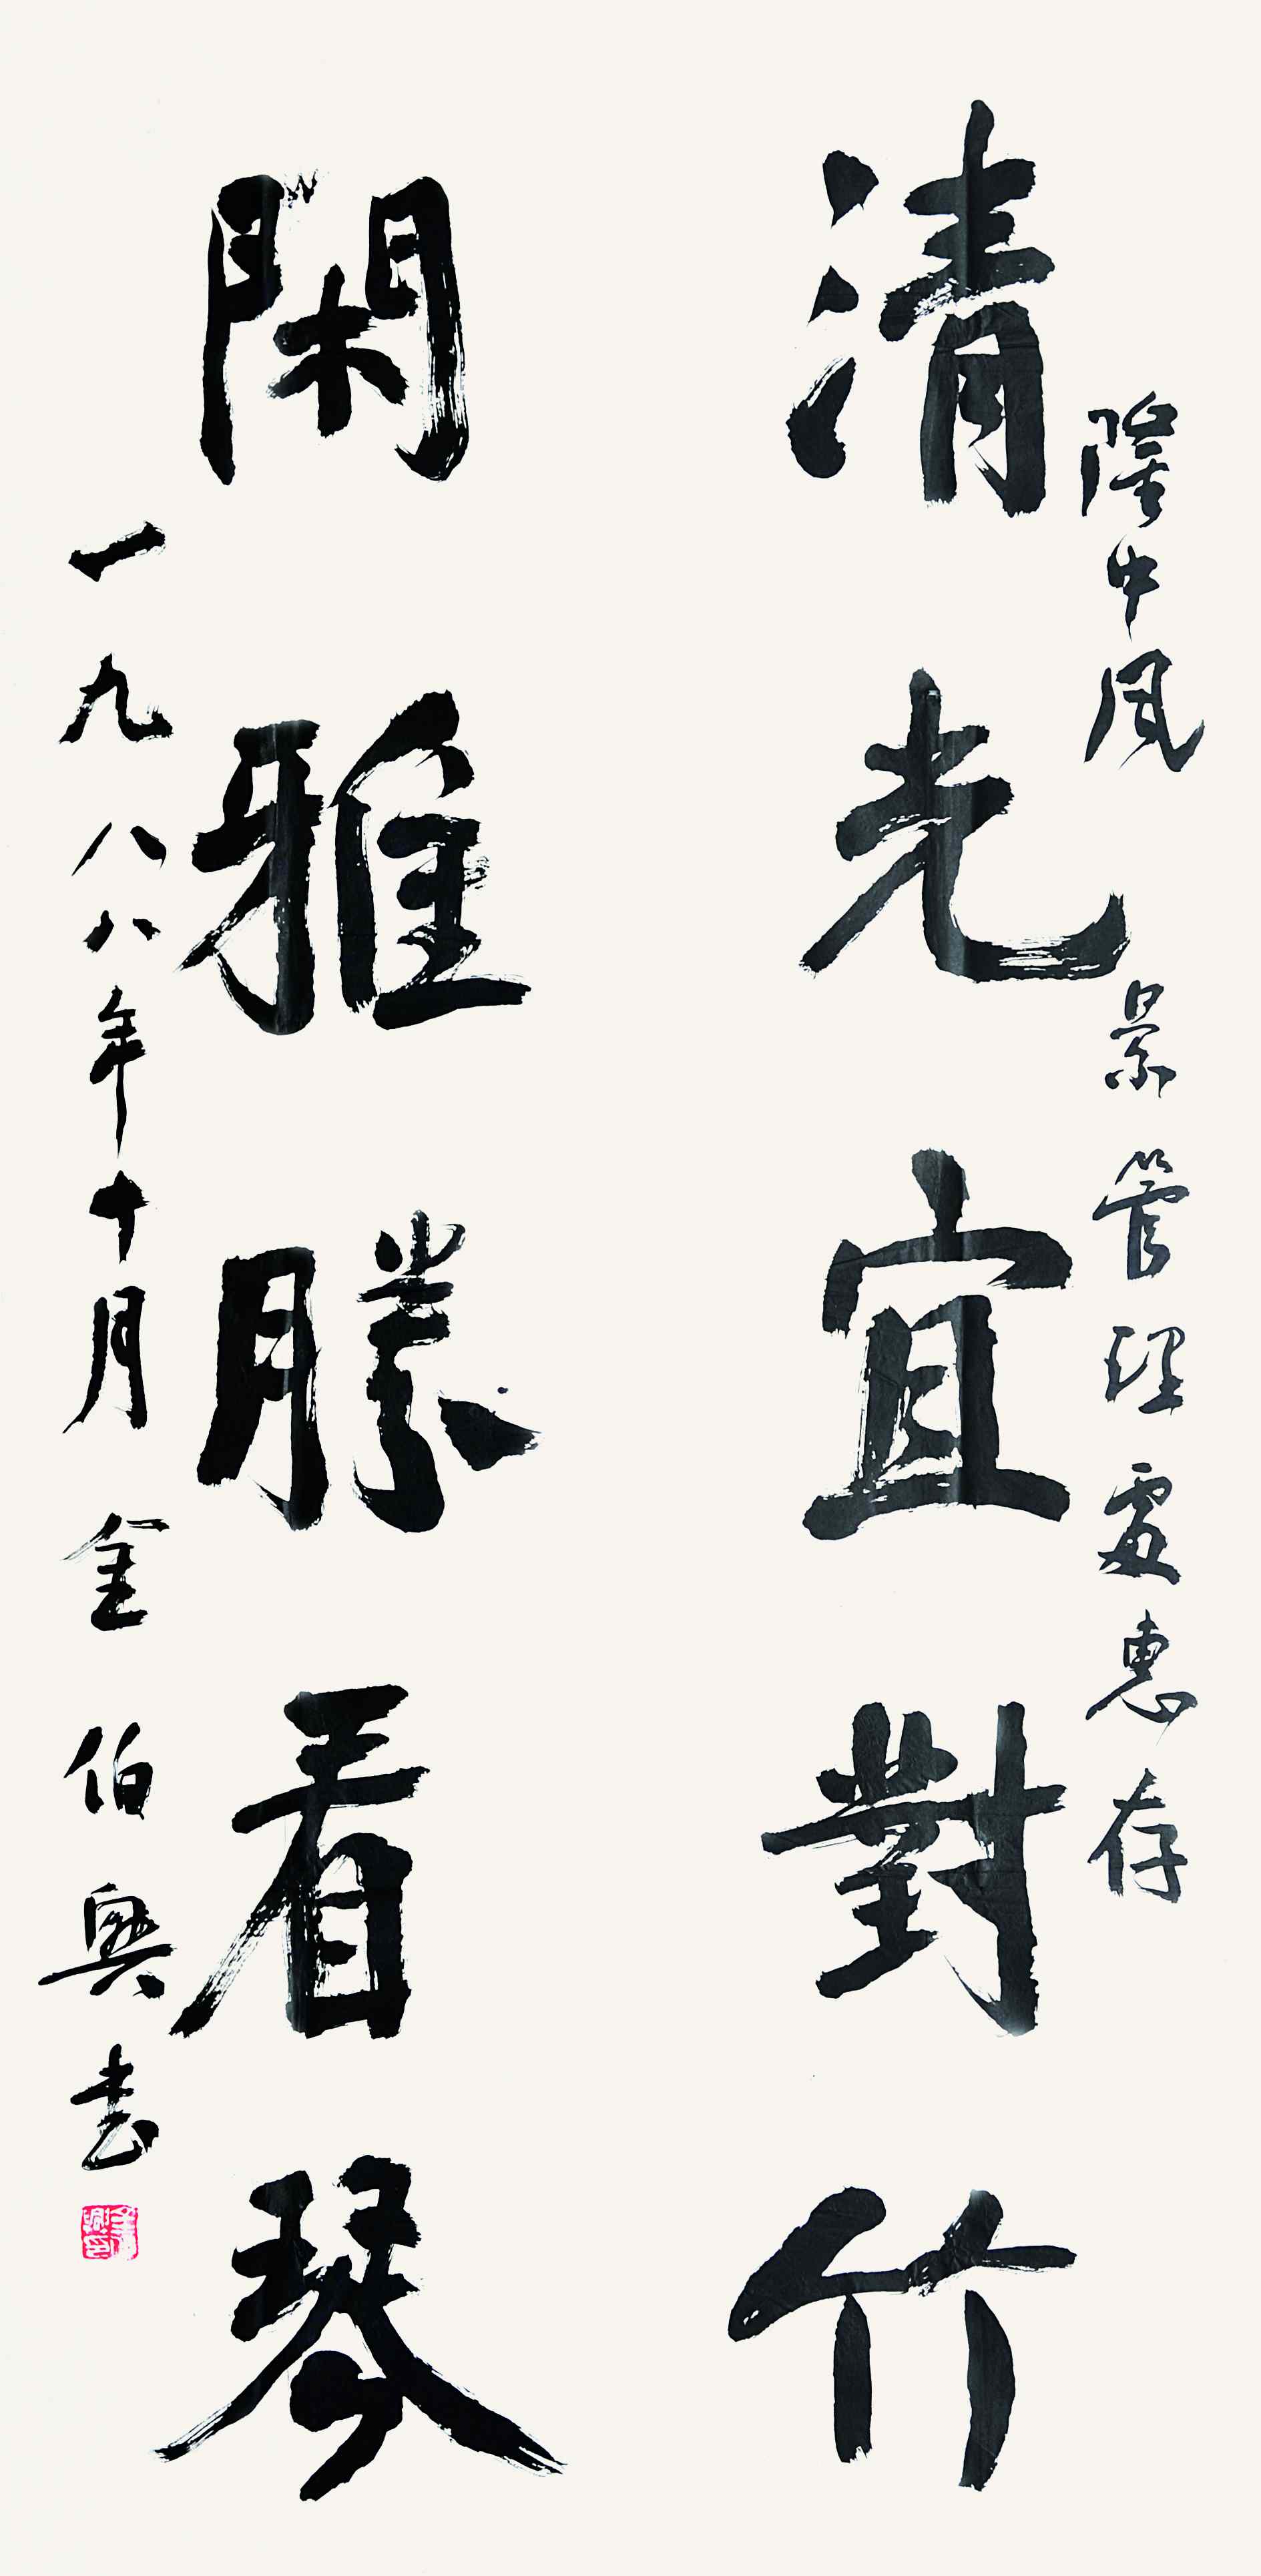 隆中風景管理處惠存
清光宜對竹
閑雅勝看琴
一九八八年十月金伯興書